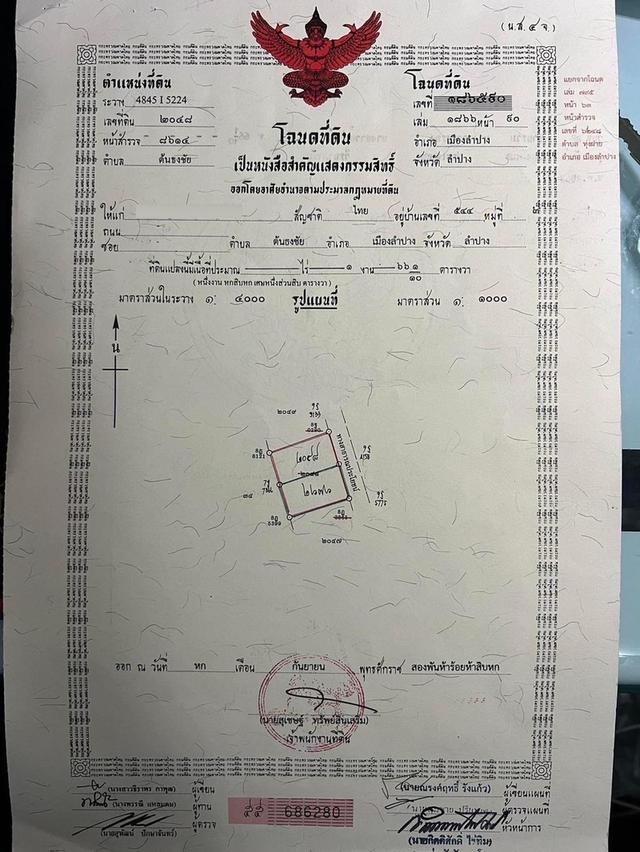 (น.ส. ๔ จ.)
ตำแหน่งที่ดิน
ระวาง 4845 I 5224
เลขที่ดิน ๒๐๔๘
หน้าสำรวจ ๘๖๑๔
ตำบล ต้นธงชัย
โฉนดที่ดิน
เลขที่ ๑๘๖๕๙๐
เล่ม ๑๘๖๖ หน้า ๙๐
อำเภอ เมืองลำปาง
จังหวัด ลำปาง
แยกจากโฉนด
หน้า ๖๓
หน้าสำรวจ
อำเภอ เมืองลำปาง
โฉนดที่ดิน
เป็นหนังสือสำคัญแสดงกรรมสิทธิ์
ออกโดยอาศัยอำนาจตามประมวลกฎหมายที่ดิน
ให้แก่ สัญชาติ ไทย อยู่บ้านเลขที่ ๕๔๔ หมู่ที่
ถนน
ซอย ตำบล ต้นธงชัย อำเภอ เมืองลำปาง จังหวัด ลำปาง
ที่ดินแปลงนี้มีเนื้อที่ประมาณ ไร่ ๑ งาน ๖๖ ๑/๑๐ ตารางวา
(หนึ่งงาน หกสิบหก เศษหนึ่งส่วนสิบ ตารางวา)
มาตราส่วนในระวาง ๑: ๔๐๐๐ รูปแผนที่ มาตราส่วน ๑: ๑๐๐๐
น
๒๐๔๙
ทางสาธารณประโยชน์
๓๔
๒๐๔๗
ออก ณ วันที่ หก เดือน กันยายน พุทธศักราช สองพันห้าร้อยห้าสิบหก
(นายสุเชษฐ์ ทรัพย์สินเสริม)
เจ้าพนักงานที่ดิน
ผู้เขียน
ผู้ทาน
ผู้ตรวจ
๕๕ 686280
(นายณรงค์ฤทธิ์ รังแก้ว) ผู้เขียนแผนที่
ผู้ตรวจแผนที่
หัวหน้าการ
(นายกิตติศักดิ์ ไร่ทิม)